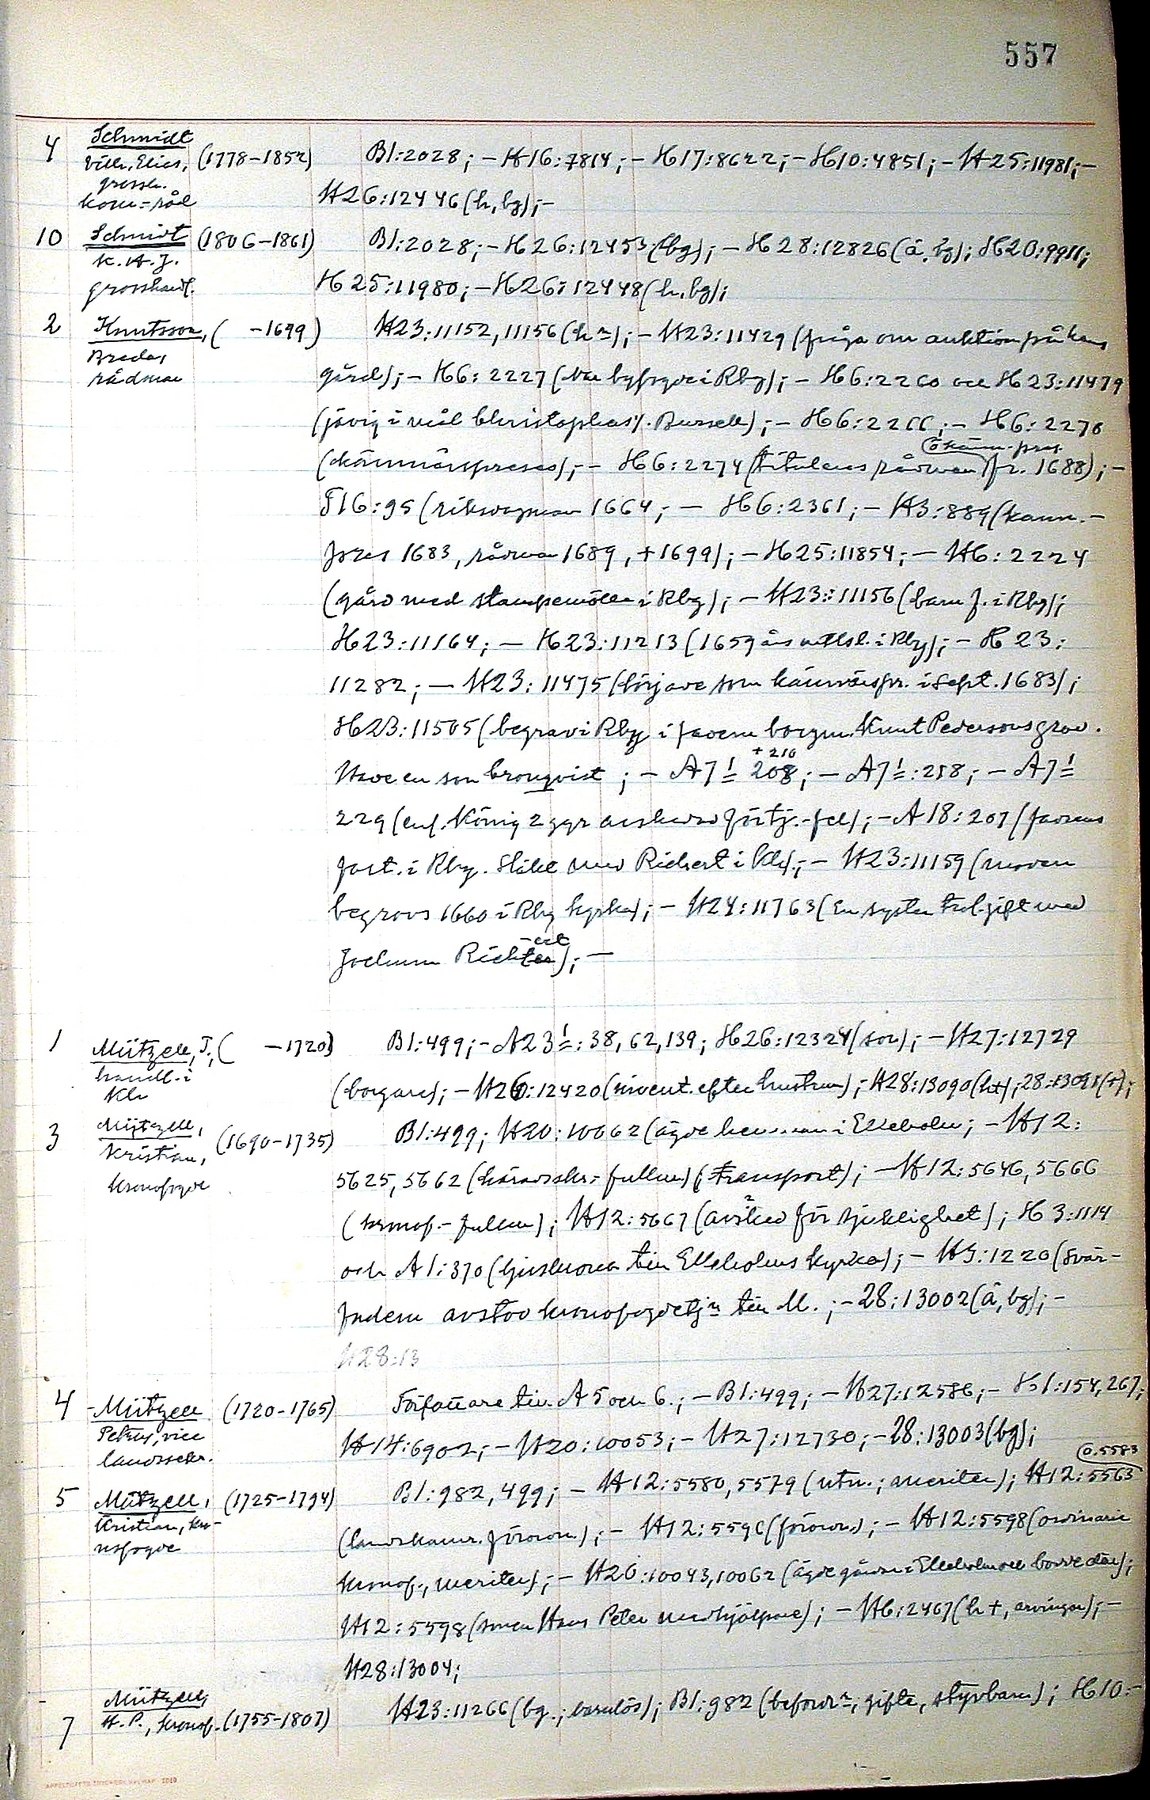 557
4 Schmidt
Vilh. Elias, (1778-1852) B1:2028; - H16:7814; - H17:8622; - H10:4851; - H25:11981; -
grossh.
kom.-råd H26:12446 (h, bg); -
10 Schmidt (1806-1861) B1:2028; - H26:12453 (bg); - H28:12826 (å, bg); H20:9911;
K. A. J.
grosshandl. H25:11980; - H26:12448 (h, bg);
2 Knutsson, ( -1699) H23:11152, 11156 (hn); - H23:11429 (fråga om auktion på hans
Breda,
rådman gård); - H6:2227 (var byfogde i Rby); - H6:2260 och H23:11479
(jävig i mål Christopher Bussell); - H6:2266; - H6:2270
o kämn. pres.
(kämnärspreses); - H6:2274 (titulens rådman fr. 1688); -
F16:95 (riksdagsman 1664; - H6:2361; - H3:889 (kämn.-
pres 1683, rådman 1689, +1699); - H25:11854; - H6:2224
(gård med stampemölla i Rby); - H23:11156 (barn f. i Rby);
H23:11164; - H23:11213 (1659 i Rby); - H23:
11282; - H23:11475 (började som kämnärspr. i Sept. 1683);
H23:11505 (begrav i Rby i fadern borgm. Knut Pedersons grav.
+ 210
Hade en son Cronqvist; - A7 1: 208; - A7 1:258; - A7 1
229 (enl. König 2 ggr avskedad för tj.-fel); - A18:207 (faderns
fast. i Rby. Släkt med Richert i Rby.; - H23:11159 (modern
begravs 1660 i Rby kyrka); - H24:11763 (En syster till gift med
-ert
Jochum Richter); -
1 Mützell, J., ( -1720) B1:499; - A23 1:38, 62, 139; H26:12324 (son); - H27:12729
handl. i
Kla (borgare); - H26:12420 (invent. efter hustrun); - H28:13090 (h+); 28:13091 (+);
3 Mützell,
Kristian, (1690-1735) B1:499; H20:10062 (ägde hemman i Elleholm; - H12:
Kronofogde 5625, 5662 (häradsskr.-fullm) (transport); - H12:5646, 5666
(kronof.-fullm); H12:5667 (avsked för sjuklighet); H3:1114
och A1:370 (ljuskrona till Elleholms kyrka); - H3:1220 (Svär-
fadern avstod kronofogdetjn till M.; - 28:13002 (å, bg); -
H28:13
4 Mützell (1720-1765) Författare till A5 och 6.; - B1:499; - H27:12586; - H1:154, 267;
Petrus, vice
landssekr. H14:6902; - H20:10053; - H27:12730; - 28:13003 (bg);
o. 5583
5 Mützell, (1725-1794) B1:982, 499; - H12:5580, 5579 (utn.; meriter); H12:5563
Kristian, kro-
nofogde (landskamr. förordn.); - H12:5590 (förordn.); - H12:5598 (ordinarie
kronof., meriter); - H20:10043, 10062 (ägde gården i Elleholm och bodde där);
H12:5598 (sonen Hans Peter medhjälpare); - H6:2467 (h +, arvingar); -
H28:13004;
7 Mützell,
H. P., kronof. (1755-1807) H23:11266 (bg.; barnlös); B1:982 (befordrn, gifte, styvbarn); H10:-